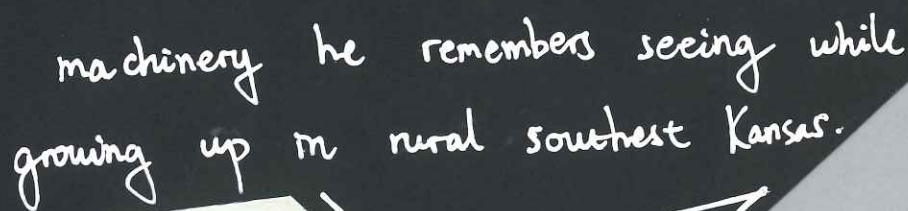 machinery he remembers seeing while
growing up in rural southest Kansas.